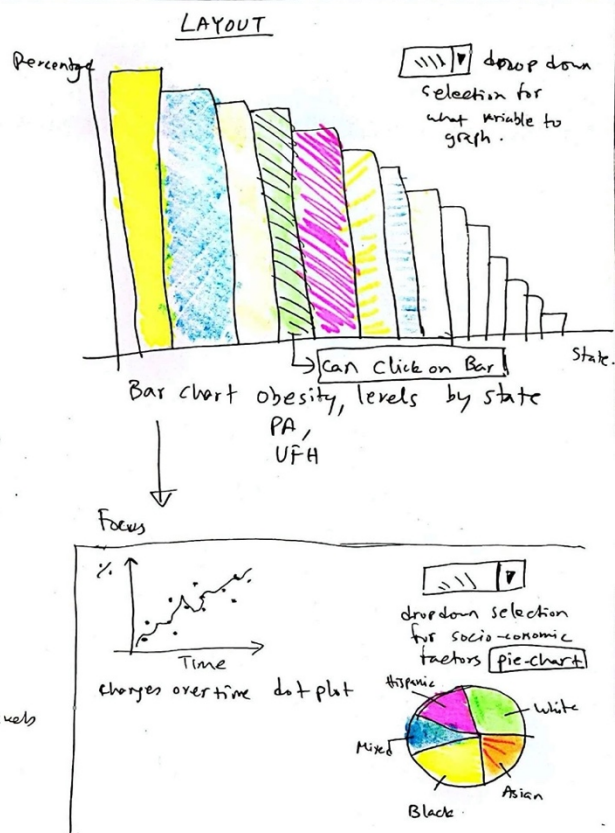 LAYOUT
Percentage
drop down
selection for
what variable to
graph.
State.
can click on Bar
Bar chart obesity, levels by state
PA,
UFH
Focus
%
Time
changes over time dot plot
dropdown selection
for socio-economic
factors pie-chart
Hispanic
White
Mixed
Asian
Black